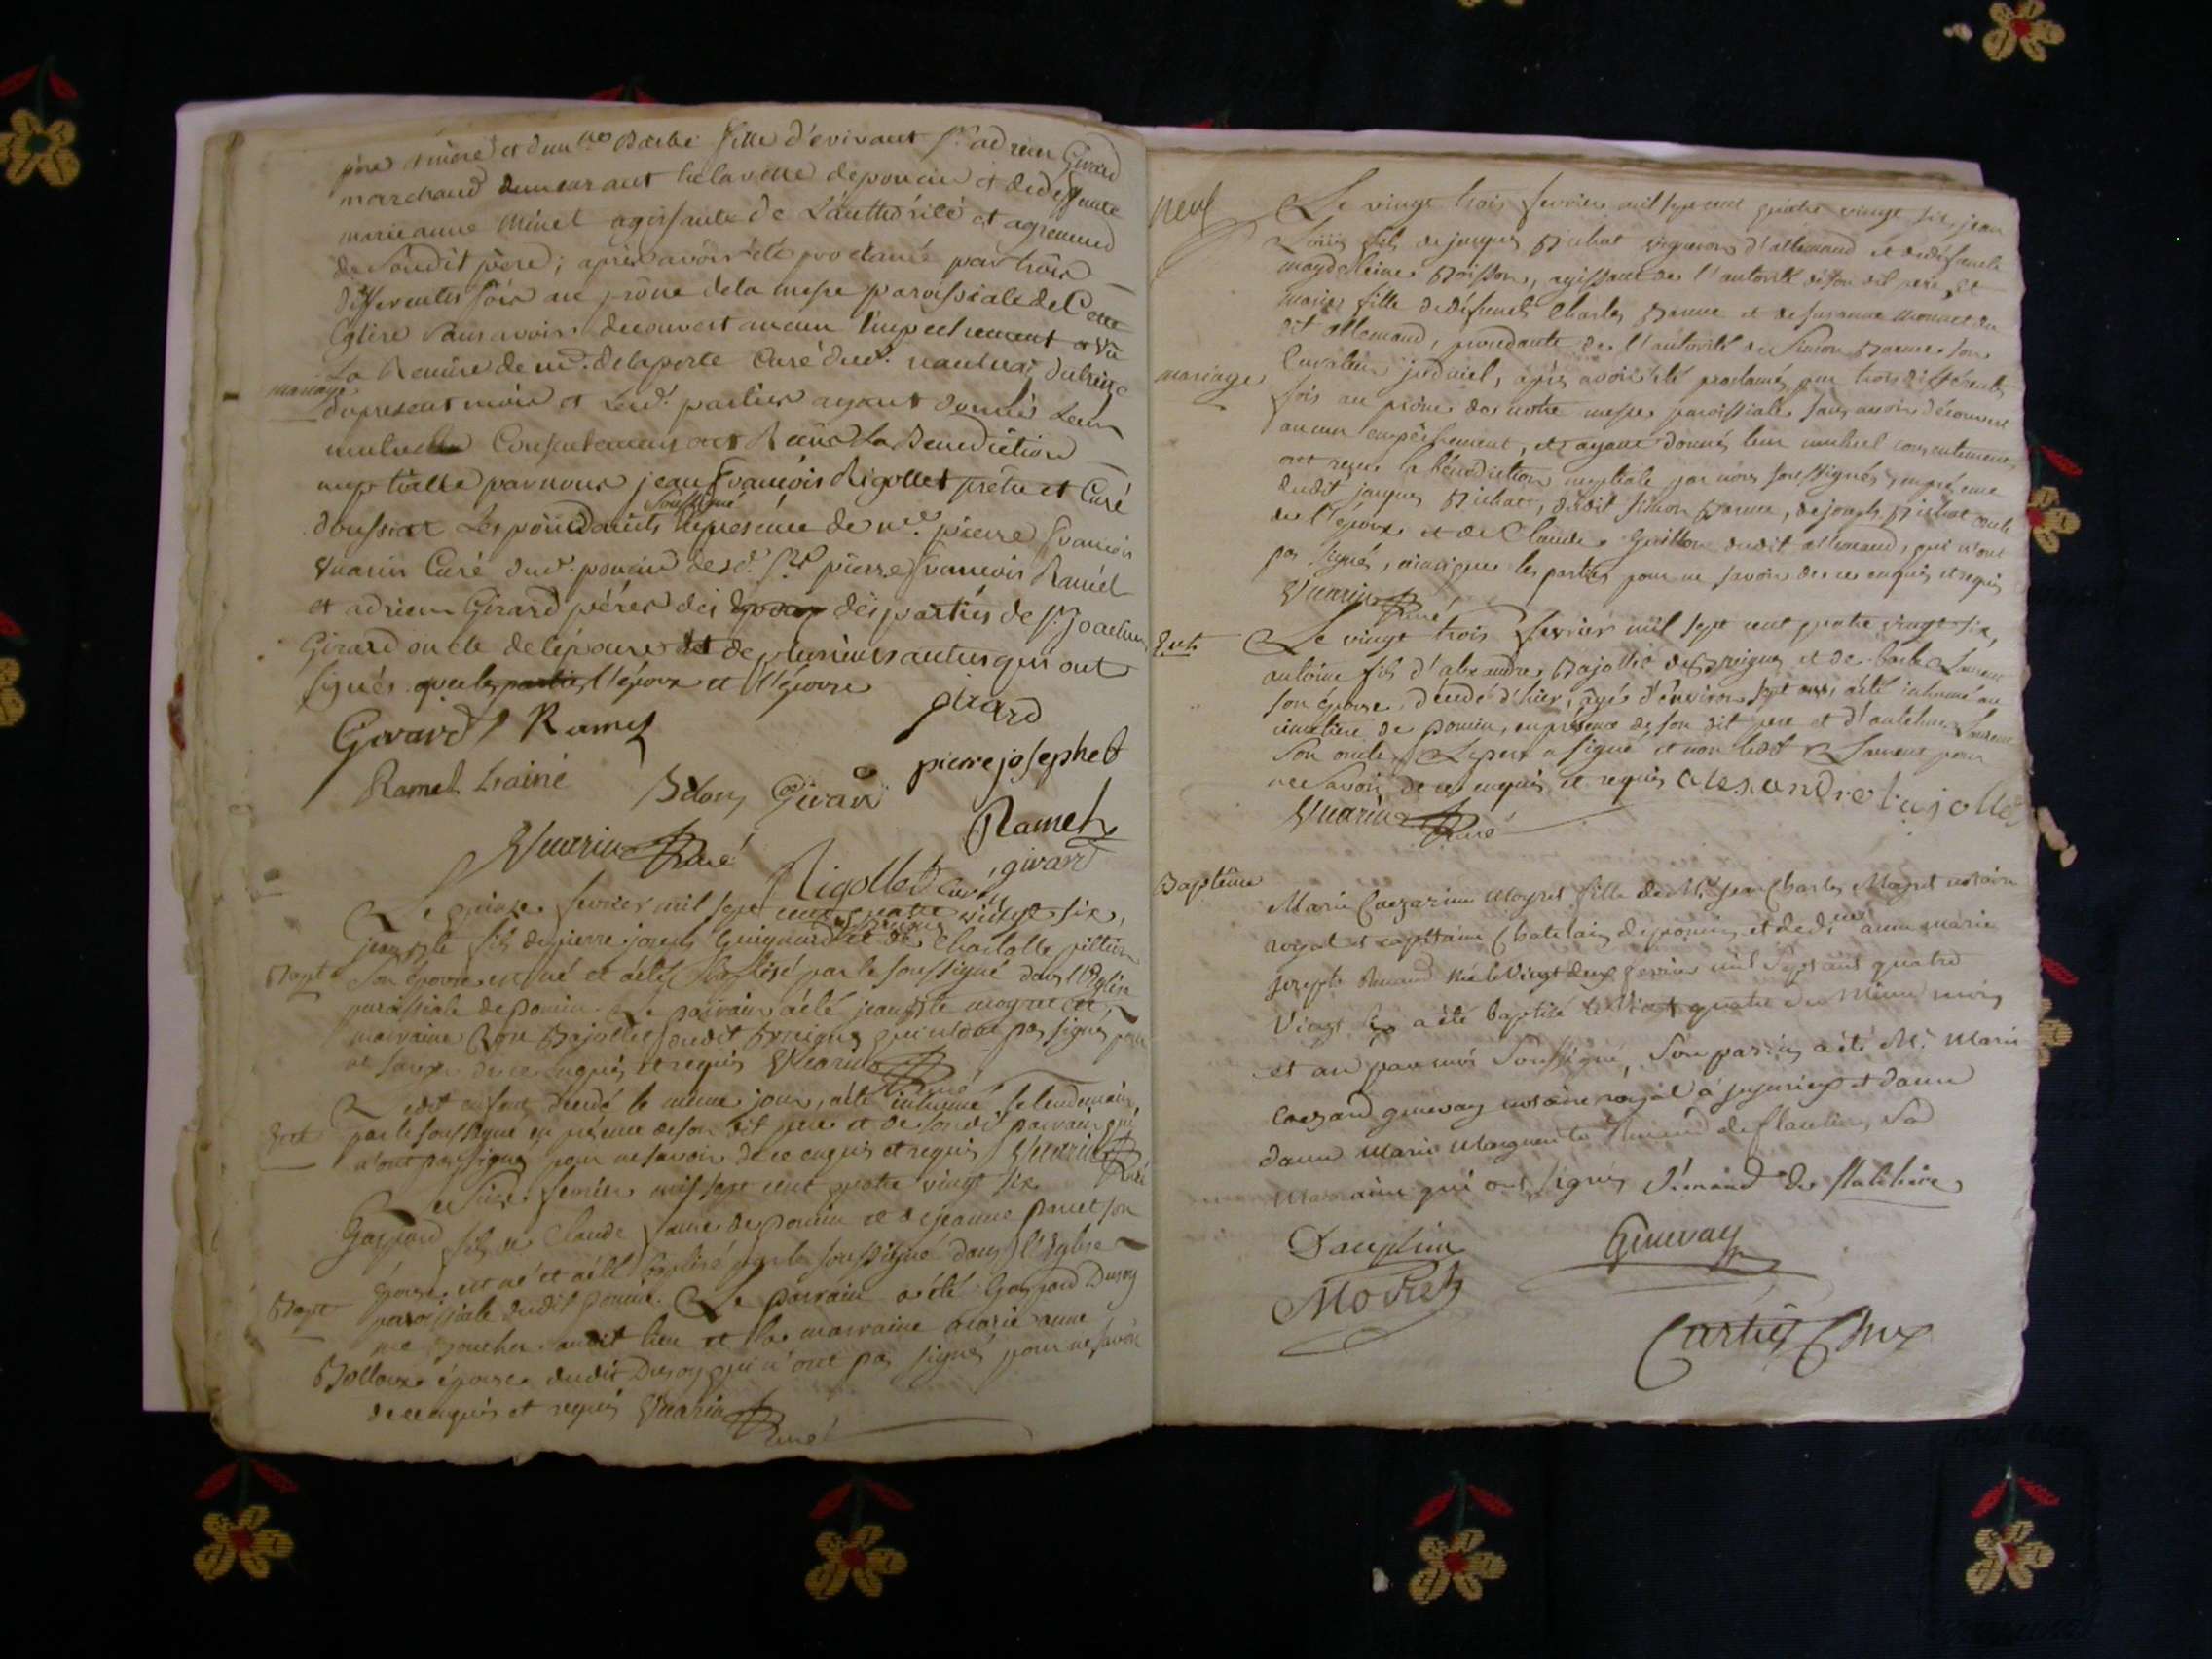 père et mère et dem.lle Barbe fille d'évivant s.r adrien Girard
marchand demeurant en la ville de poncin et de deffunte
marie anne Minet agissante de L'authorité et agrement
de Sondit père; après avoir été proclamé par trois
differentes fois au prône de la messe paroissiale de Cette
Eglise Sans avoir decouvert aucun Empechement et vû
La Remise de m.r delaporte Curé dud. nantua du treize
mariage
du present mois et Lesd. parties ayant donné Leur
mutuelle Consentement ont Reçus La Benediction
nuptialle par nous jean francois Rigollet prêtre et Curé
soussigné
doussiat En presence de m.re pierre francois
Vuarin Curé dud. poncin desd. s.rs pierre francois Ramel
et adrien Girard pères des parties de s.r joachim
Girard oncle de lépouse et de plusieurs autres qui ont
signés avec l'époux et l'épouse
Girard Ramel girard
Ramel Lainé Bdon Girard pierre joseph
Ramel
Vuarin Curé Rigollet Curé girard
Le quinze fevrier mil sept cent quatre vingt six,
jean bte fils de pierre joseph Guignard et de Charlotte
Bapt
son épouse est né et a été Baptisé par le soussigné dans l'Eglise
paroissiale de poncin. Le parrain a été jean bte et
marraine Bajollet qui n'ont pas signés pour
ne savoir de ce enquis et requis Vuarin Curé
Ledit enfant décédé le même jour, a été inhumé le lendemain
Ent
par le soussigné en présence de son dit père et de son dit parrain qui
n'ont pas signés pour ne savoir de ce enquis et requis Vuarin Curé
Le seize fevrier mil sept cent quatre vingt six
Gaspard fils de Claude de poncin et de jeanne son
épouse est né et a été baptisé par le soussigné dans l'Eglise
Bapt
paroissiale dudit poncin. Le parrain a été Gaspard
boucher audit lieu et la marraine marie anne
épouse dudit qui n'ont pas signés pour ne savoir
de ce enquis et requis Vuarin Curé
neuf
Le vingt trois fevrier mil sept cent quatre vingt six, jean
Loüis fils de jacques Bichat vigneron d'allemand et de défunte
magdeleine Boisson, agissant de l'autorité de son dit père, et
marie fille de défunt Charles et de susanne Monnet du
dit allemand, procedante de l'autorité de simon son
Curateur judiciel, après avoir été proclamés par trois différentes
mariage
fois au prône de notre messe paroissiale sans avoir découvert
aucun empêchement, et ayant donnés leur mutuel consentement
ont reçus la bénédiction nuptiale par nous soussigné, en présence
dudit jacques Bichat, dudit simon, de joseph Bichat oncle
de l'époux et de Claude Guillon dudit allemand, qui n'ont
pas signés, ainsi que les parties pour ne savoir de ce enquis et requis
Vuarin Curé
Ent
Le vingt trois fevrier mil sept cent quatre vingt six,
antoine fils d'alexandre Bajollet et de Laurent
son épouse, décédé d'hier, âgé d'environ sept ans, a été inhumé au
cimetiere de poncin, en présence de son dit père et d'anthelme Laurent
son oncle. Le père a signé et non ledit Laurent pour
ne savoir de ce enquis et requis alexandre bajollet
Vuarin Curé
Baptême
Marie Caezarine Moyret fille de M.r jean Charles Moyret notaire
royal et capitaine Chatelain de poncin, et de d.e anne marie
Née le Vingt deux fevrier mil Sept cent quatre
Vingt six a été baptisé le Vingt quatre du Même mois
et an par moi Soussigné, Son parrin a été M.r Marie
Caezard genevay notaire royal à jujurieux et dame
dame Marie Marguerite Sa
Marraine qui ont signés
Dauphin Genevay
Moiret